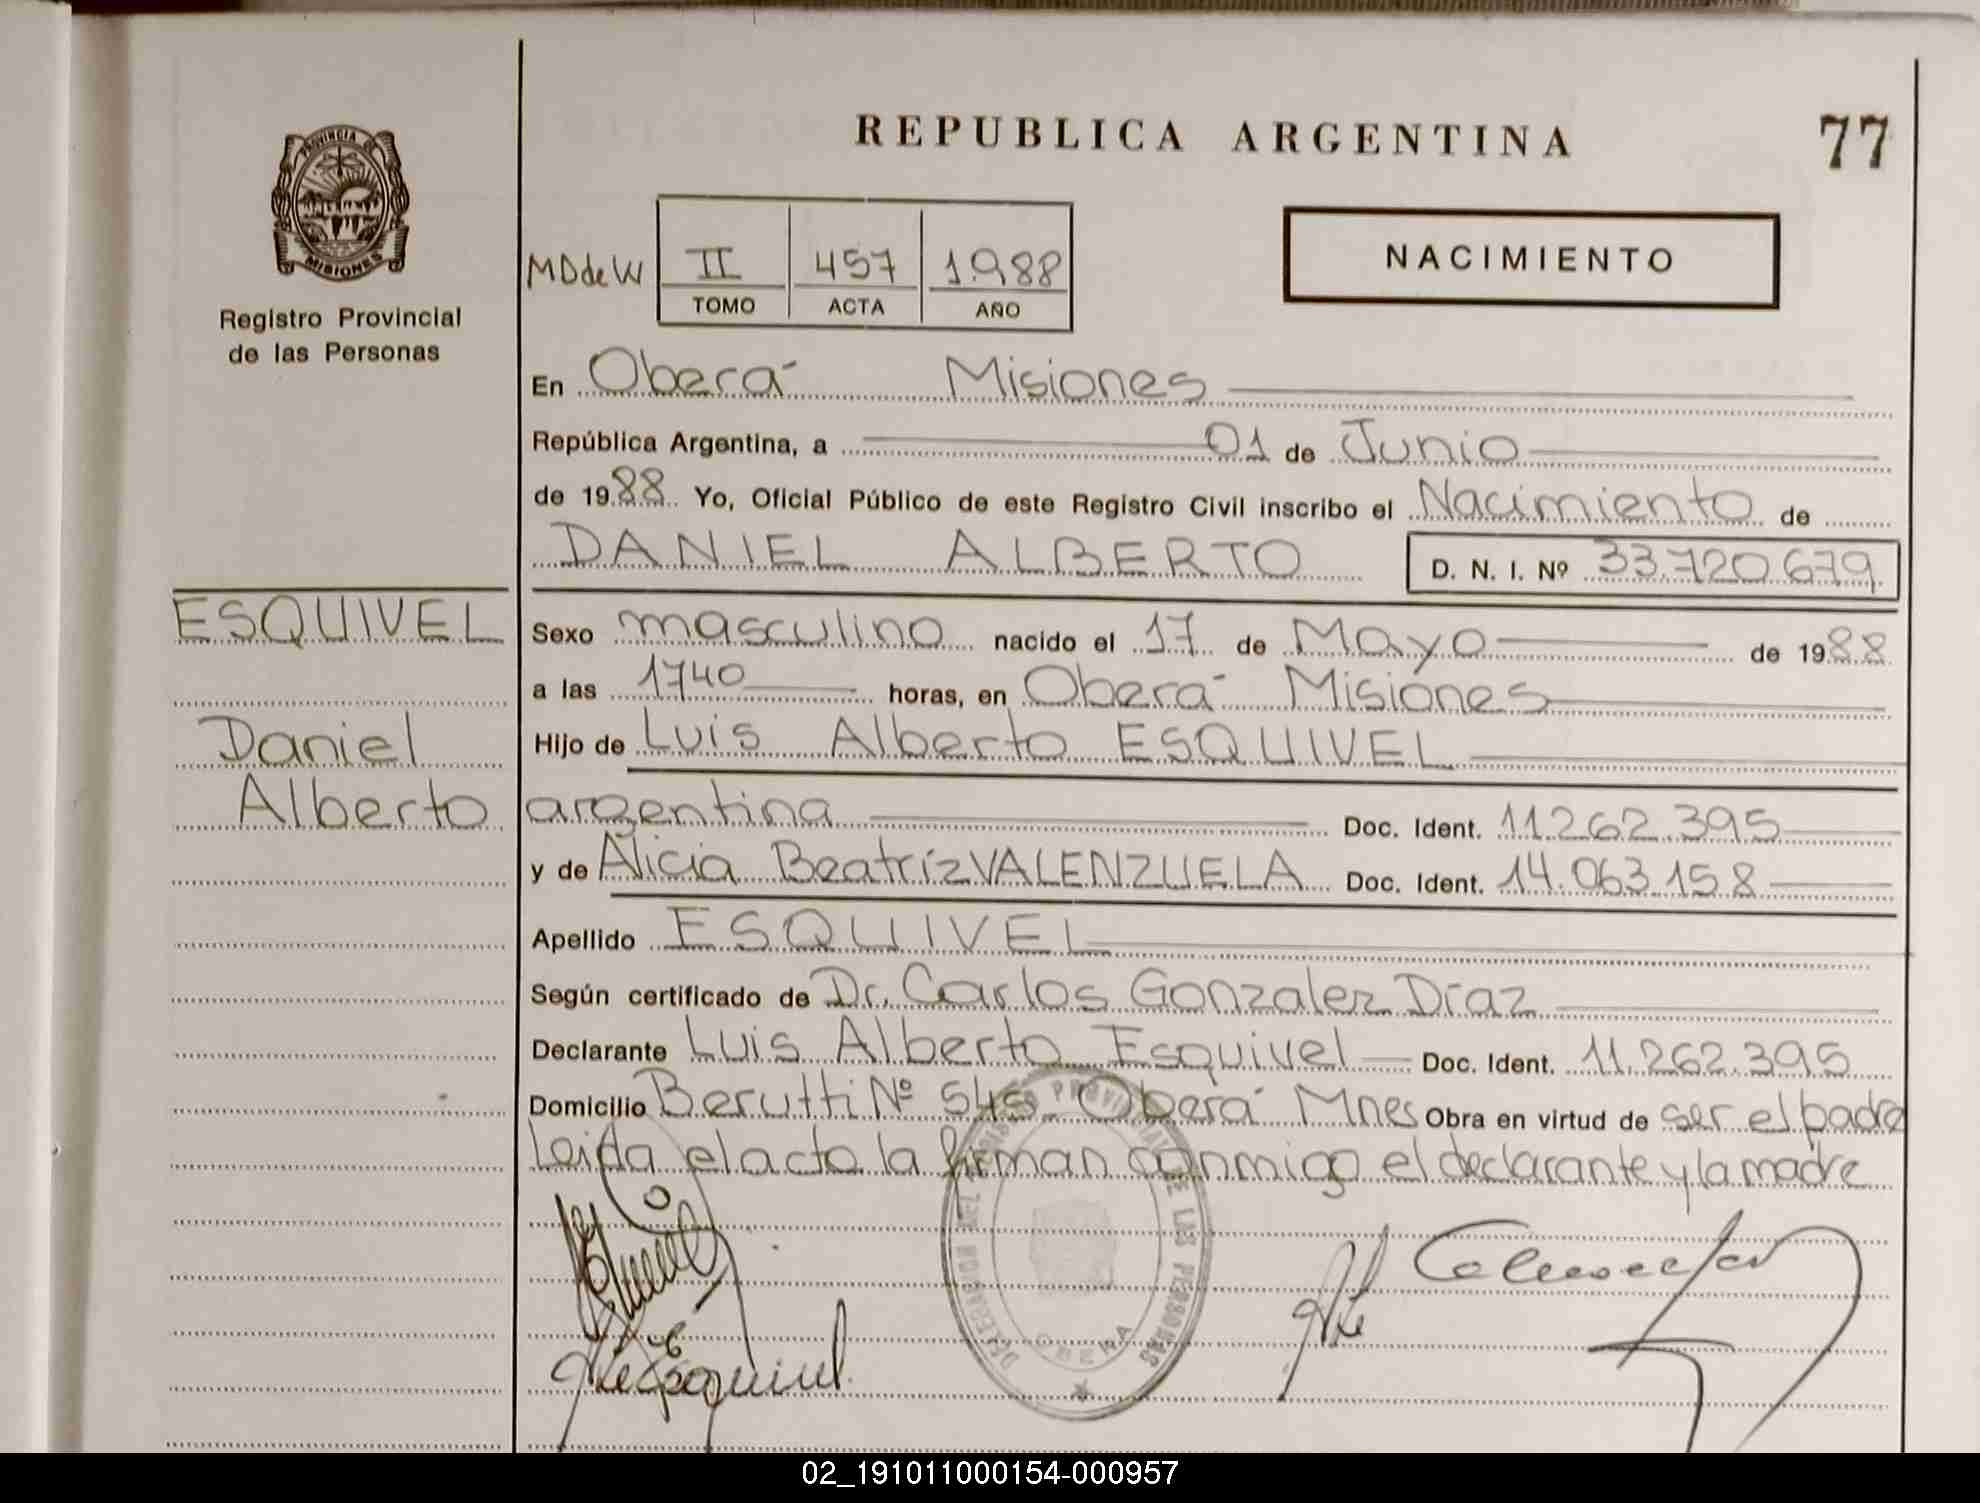 REPUBLICA ARGENTINA
77
PROVINCIA DE
MISIONES
Registro Provincial
de las Personas
MDdeW
II
457
1988
TOMO
ACTA
AÑO
NACIMIENTO
En Oberá Misiones
República Argentina, a 01 de Junio
de 1988 Yo, Oficial Público de este Registro Civil inscribo el Nacimiento de
DANIEL ALBERTO
D. N. I. Nº 33.720.679
ESQUIVEL
Daniel
Alberto
Sexo masculino nacido el 17 de Mayo de 1988
a las 1740 horas, en Oberá Misiones
Hijo de Luis Alberto ESQUIVEL
argentina Doc. Ident. 11.262.395
y de Alicia Beatríz VALENZUELA Doc. Ident. 14.063.158
Apellido ESQUIVEL
Según certificado de Dr. Carlos Gonzalez Díaz
Declarante Luis Alberto Esquivel Doc. Ident. 11.262.395
Domicilio Berutti Nº 545 Oberá Mnes Obra en virtud de ser el padre
Leida el acto la firman conmigo el declarante y la madre
02_191011000154-000957